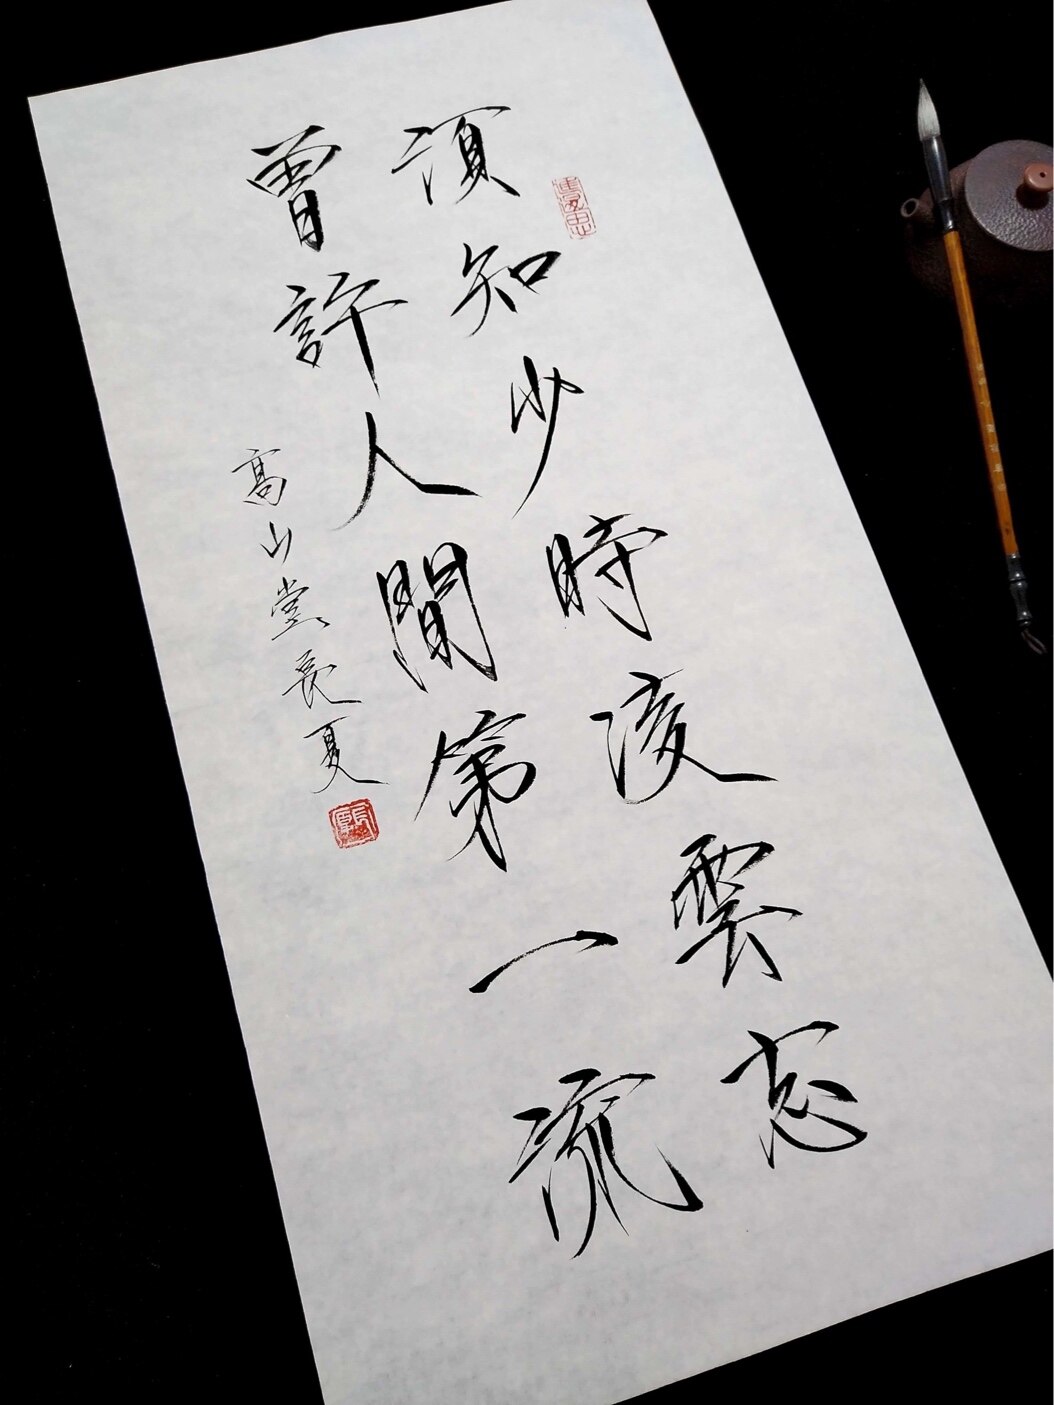 須知少時凌雲志
曾許人間第一流
高山堂長夏